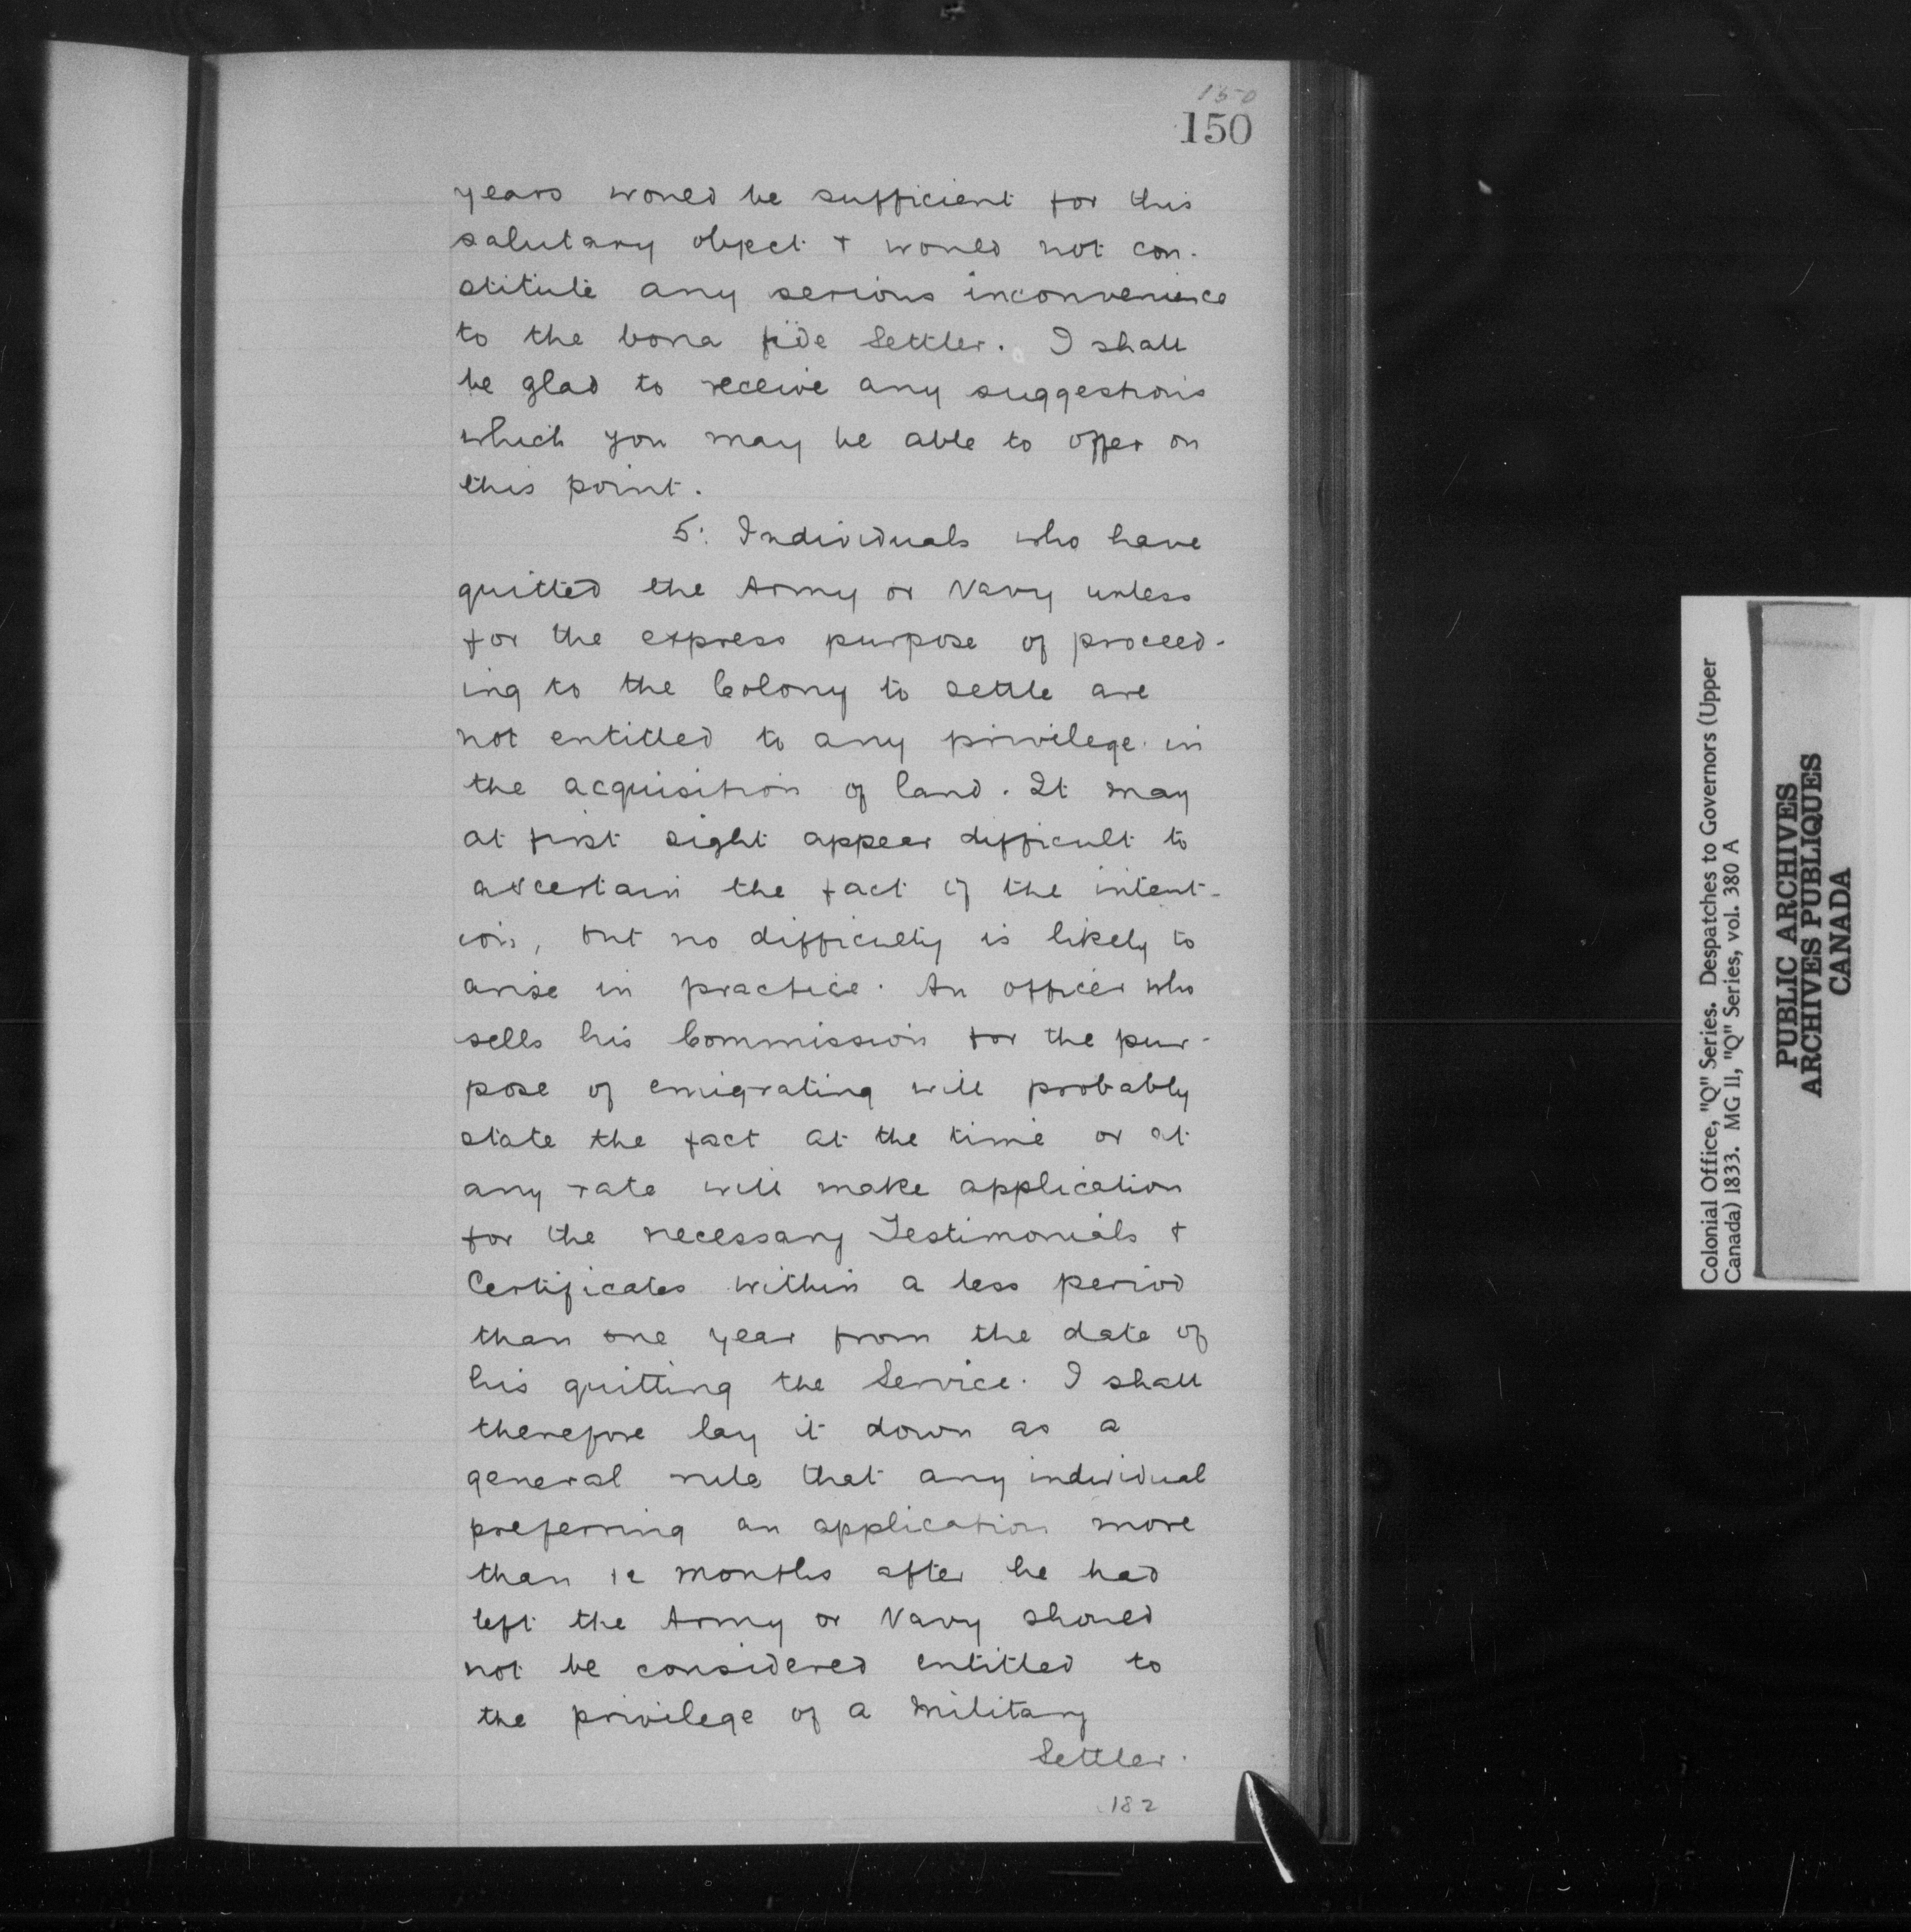 150
150
years would be sufficient for this
salutary object + would not con-
stitute any serious inconvenience
to the bona fide Settler. I shall
be glad to receive any suggestions
which you may be able to offer on
this point.
5: Individuals who have
quitted the Army or Navy unless
for the express purpose of proceed-
ing to the Colony to settle are
not entitled to any privilege in
the acquisition of land. It may
at first sight appear difficult to
ascertain the fact of the intent-
ion, but no difficulty is likely to
arise in practice. An officer who
sells his Commission for the pur-
pose of emigrating will probably
state the fact at the time or at
any rate will make application
for the necessary Testimonials +
Certificates within a less period
than one year from the date of
his quitting the Service. I shall
therefore lay it down as a
general rule that any individual
preferring an application more
than 12 months after he had
left the Army or Navy should
not be considered entitled to
the privilege of a Military
Settler.
182
Colonial Office, "Q" Series. Despatches to Governors (Upper
Canada) 1833. MG 11, "Q" Series, vol. 380 A
PUBLIC ARCHIVES
ARCHIVES PUBLIQUES
CANADA